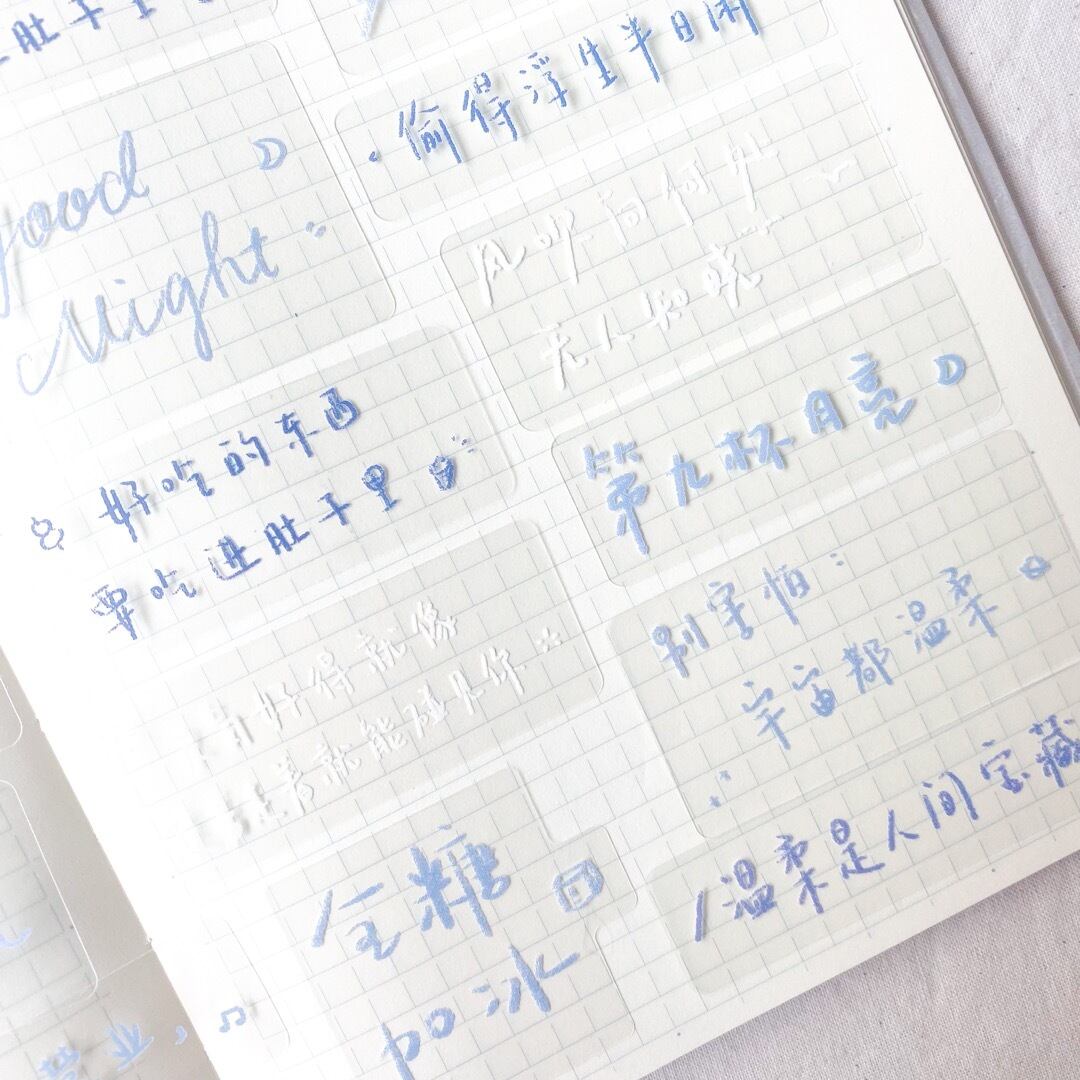 肚子里
偷得浮生半日闲
good
Night
风吹向何处
无人知晓
好吃的东西
要吃进肚子里
第九杯月亮
刚好得就像
走着就能碰见你
别害怕:
宇宙都温柔
温柔是人间宝藏
全糖
加冰
营业,